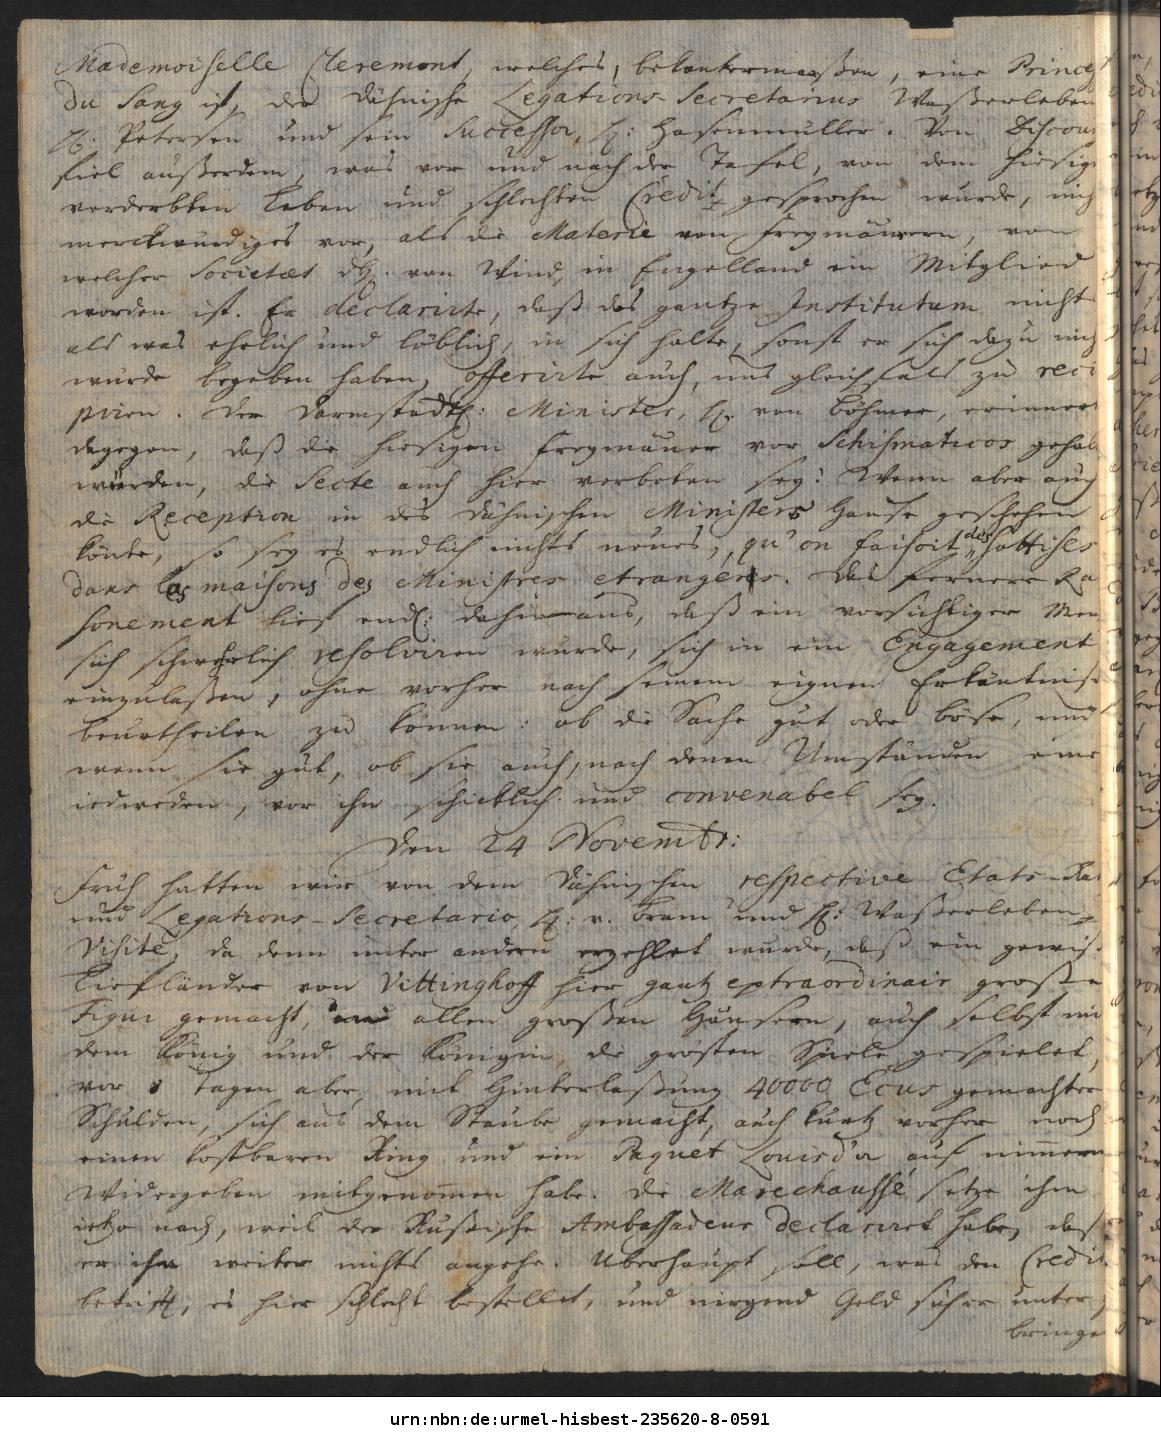 Mademoiselle Cleremont, welches, bekantermaaßen, eine Princeß
du Sang ist, der Dähnische Legations-Secretarius Waßerleben
H. Petersen und sein Successor, H: Hasenmüller. Von Discours
fiel außerdem, was vor und nach der Tafel, von dem hiesigen
verderbten Leben und schlechten Credit gesprochen wurde, nich
merckwürdiges vor, als die Materie von Freymäurern, von
welcher Societaet dH. von Wind, in Engelland ein Mitglied
worden ist. Er declarirte, daß das gantze Institutum nichts
als was ehrlich und löblich, in sich halte, sonst er sich dazu nich
würde begeben haben, offerirte auch, uns gleichfals zu reci
piren. Der Darmstädtsch: Minister, H. von Böhmer, erinnert
dagegen, daß die hiesigen Freymäurer vor Schismaticos gehal
würden, die Secte auch hier verboten sey: Wenn aber auch
die Reception in des Dähnischen Ministers Hause geschehen
könte, so sey es endlich nichts neues, qu'on faisoit des sottises
dans les maisons des Ministres etrangers. Das fernere Ra
sonement lief endl: dahin aus, daß ein vorsichtiger Men
sich schwehrlich resolviren würde, sich in ein Engagement
einzulaßen, ohne vorher nach seinem eignen Erkäntniße
beurtheilen zu können: ob die Sache gut oder böse, und
wenn sie gut, ob sie auch, nach denen Umständen eines
iedweden, vor ihn schicklich und convenabel sey.
Den 24 Novembr:
Früh hatten wir von dem Dähnischen respective Etats-Rat
und Legations-Secretario, H: v. Bram und H: Waßerleben
Visite, da denn unter andern erzehlet wurde, daß ein gewiß.
Liefländer von Vittinghoff hier gantz extraordinair große
Figur gemacht, in allen großen Häusern, auch selbst mit
dem König und der Königin, die grösten Spiele gespielet,
vor 8 Tagen aber, mit Hinterlaßung 40000 Ecus gemachter
Schulden, sich aus dem Staube gemacht, auch kurtz vorher noch
einen kostbaren Ring und ein Paquet Louisd'or auf nimmer
Widergeben mitgenommen habe. Die Marechaussé setze ihm
ietzo nach, weil der Rußische Ambassadeur declariret habe, daß
er ihn weiter nichts angehe. Uberhaupt soll, was den Credit
betrifft, es hier schlecht bestellet, und nirgend Geld sicher unter zu
bringen